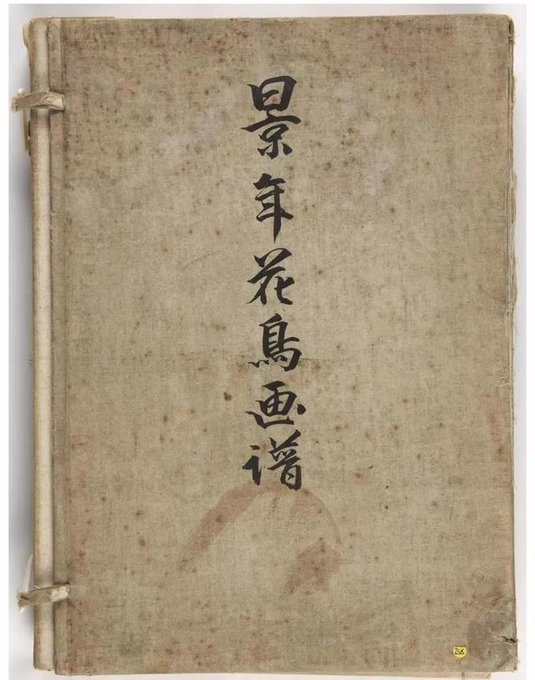 景年花鳥画谱